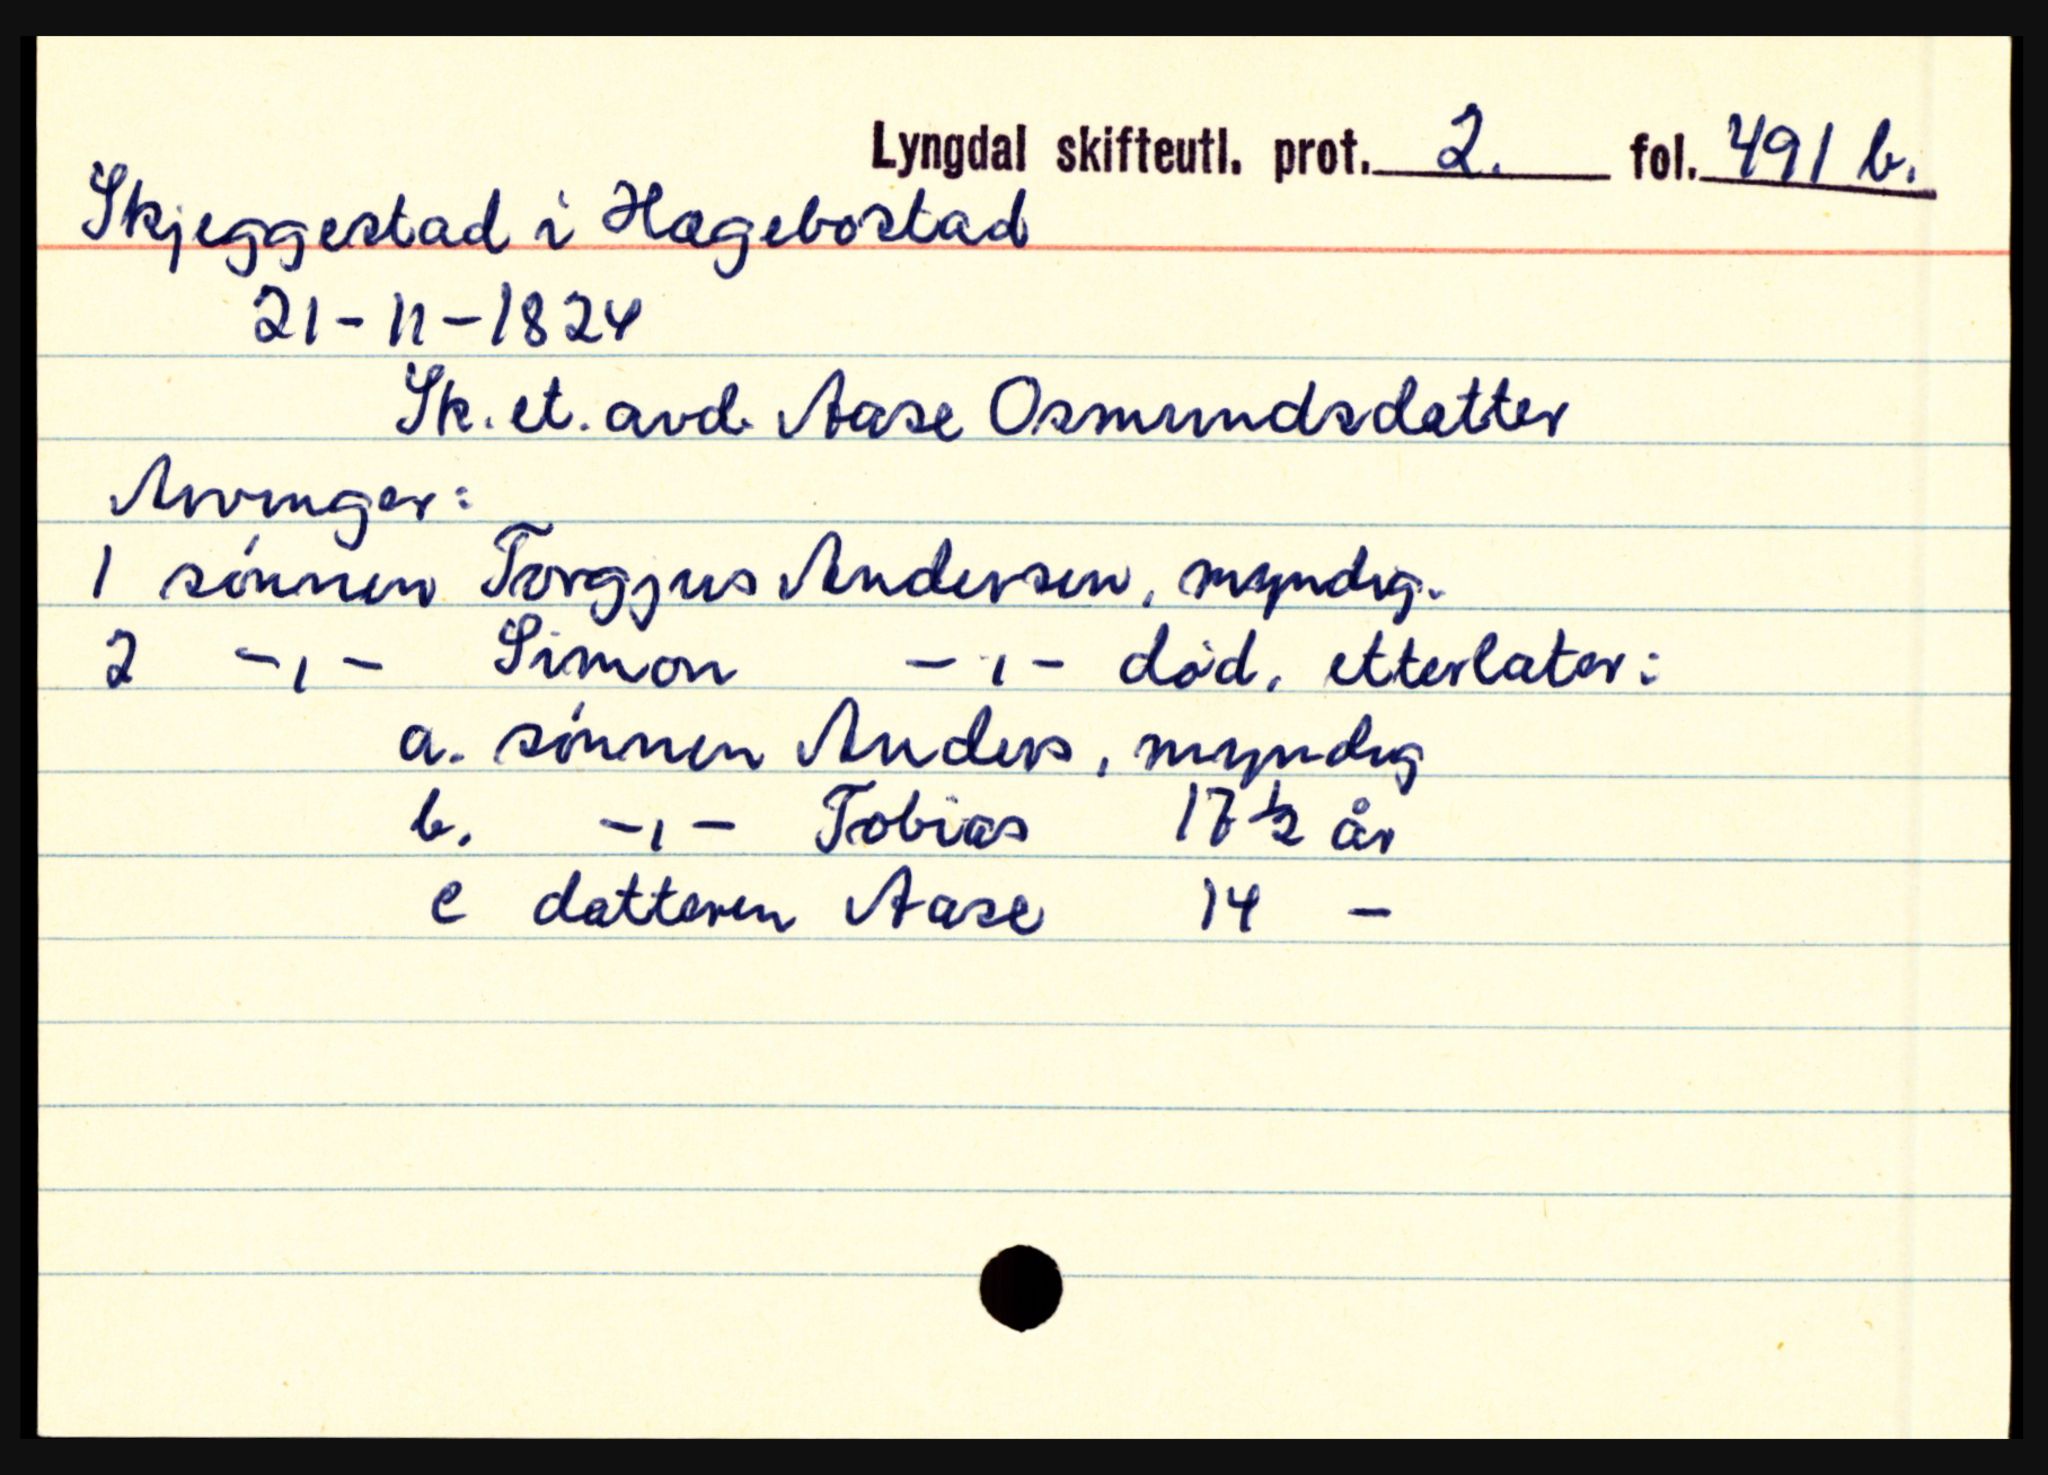 Lyngdal skifteutl. prot. 2. fol. 491 b.
Skjeggestad i Hægebostad
21-11-1824
Sk. et. avd. Aase Osmundsdatter
Arvinger:
1 sønnen Torgjus Andersen, myndig.
2 -,- Simon -,- død, etterlater:
a. sønnen Anders, myndig
b. -,- Tobias 17 1/2 år
c datteren Aase 14 -